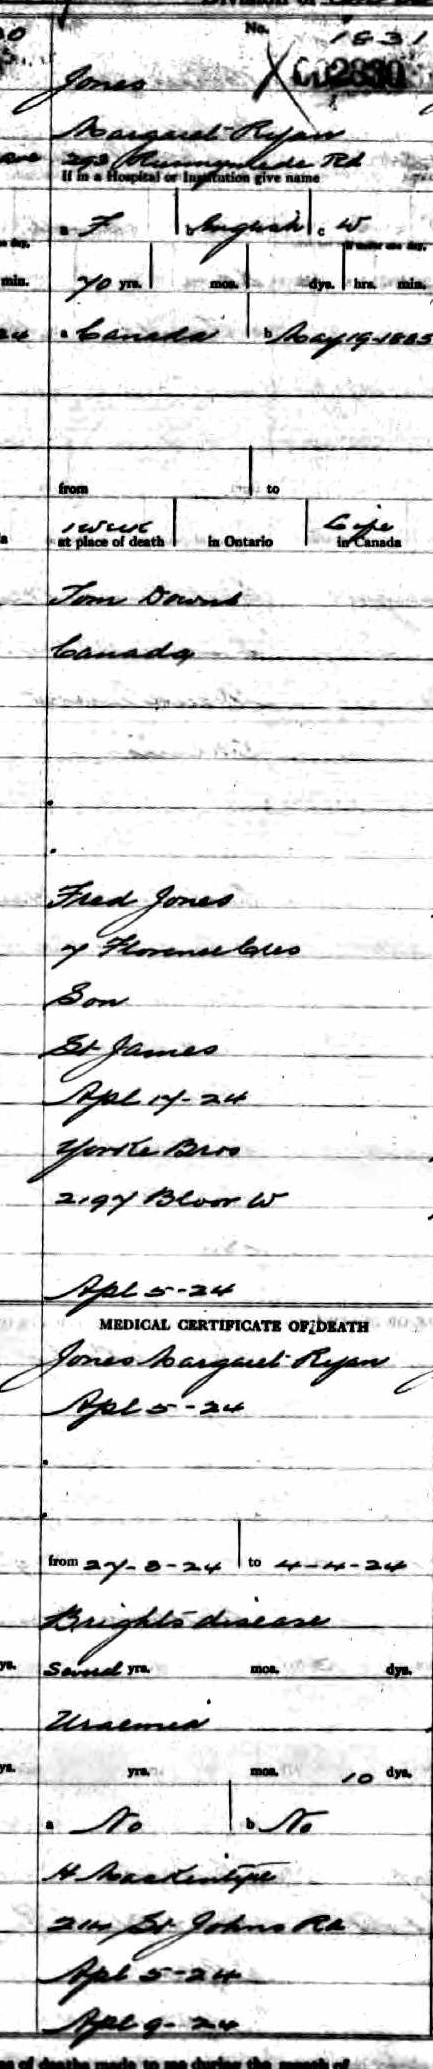 No. 1831
002830
Jones
Margaret Ryan
Runnymede Rd
If in a Hospital or Institution give name
a F b English c W
70 yrs. mos. dys. hrs. min.
a Canada b May 19-1853
from to
1 week Life
at place of death in Ontario in Canada
Tom Downs
Canada
Fred Jones
7 Florence Cres
Son
St James
Apl 17-24
Yorke Bros
2197 Bloor W
Apl 5-24
MEDICAL CERTIFICATE OF DEATH
Jones Margaret Ryan
Apl 5-24
from 27-3-24 to 4-4-24
Brights disease
Several yrs. mos. dys.
Uraemia
yrs. mos. 10 dys.
a No b No
H
St Johns Rd
Apl 5-24
Apl 9-24
of deaths made to me during the month of